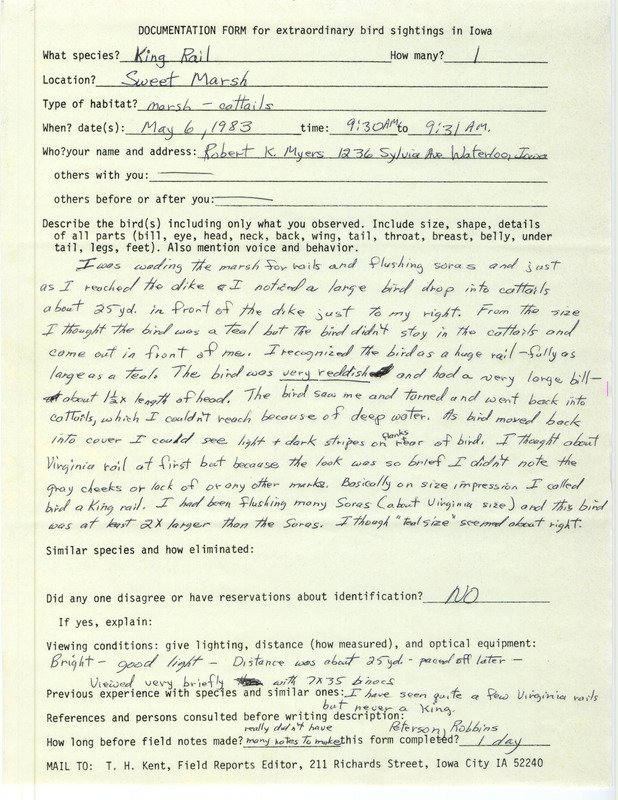 DOCUMENTATION FORM for extraordinary bird sightings in Iowa
What species? King Rail How many? 1
Location? Sweet Marsh
Type of habitat? marsh - cattails
When? date(s): May 6, 1983 time: 9:30 AM to 9:31 AM.
Who? your name and address: Robert K. Myers 1236 Sylvia Ave. Waterloo, Iowa
others with you:
others before or after you:
Describe the bird(s) including only what you observed. Include size, shape, details
of all parts (bill, eye, head, neck, back, wing, tail, throat, breast, belly, under
tail, legs, feet). Also mention voice and behavior.
I was wading the marsh for rails and flushing soras and just
as I reached the dike I noticed a large bird drop into cattails
about 25 yd. in front of the dike just to my right. From the size
I thought the bird was a teal but the bird didn't stay in the cattails and
came out in front of me. I recognized the bird as a huge rail - fully as
large as a teal. The bird was very reddish and had a very large bill-
about 1½ x length of head. The bird saw me and turned and went back into
cattails, which I couldn't reach because of deep water. As bird moved back
into cover I could see light + dark stripes on flanks rear of bird. I thought about
Virginia rail at first but because the look was so brief I didn't note the
gray cheeks or lack of or any other marks. Basically on size impression I called
bird a King rail. I had been flushing many Soras (about Virginia size) and this bird
was at least 2X larger than the Soras. I though "teal size" seemed about right.
Similar species and how eliminated:
Did any one disagree or have reservations about identification? NO
If yes, explain:
Viewing conditions: give lighting, distance (how measured), and optical equipment:
Bright - good light - Distance was about 25 yd. - paced off later -
Viewed very briefly with 7X35 binocs
Previous experience with species and similar ones: I have seen quite a few Virginia rails
but never a King.
References and persons consulted before writing description: Peterson, Robbins
How long before field notes made? really didn't have many notes to make this form completed? 1 day
MAIL TO: T. H. Kent, Field Reports Editor, 211 Richards Street, Iowa City IA 52240